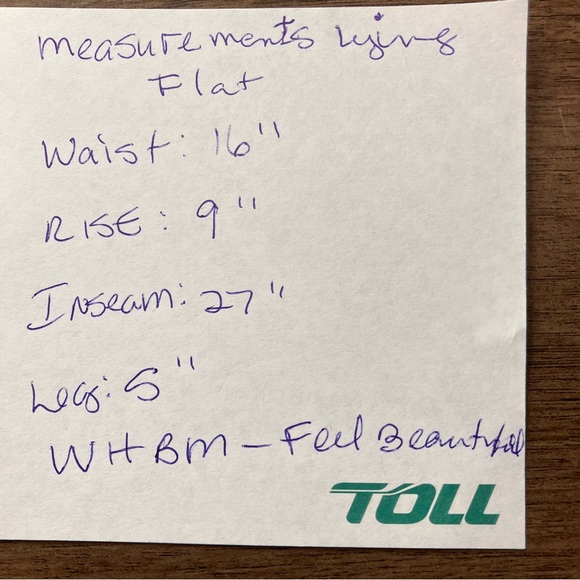 measurements lying
Flat
Waist: 16"
RISE: 9"
Inseam: 27"
Leg: 5"
WHBM - Feel Beautiful
TOLL